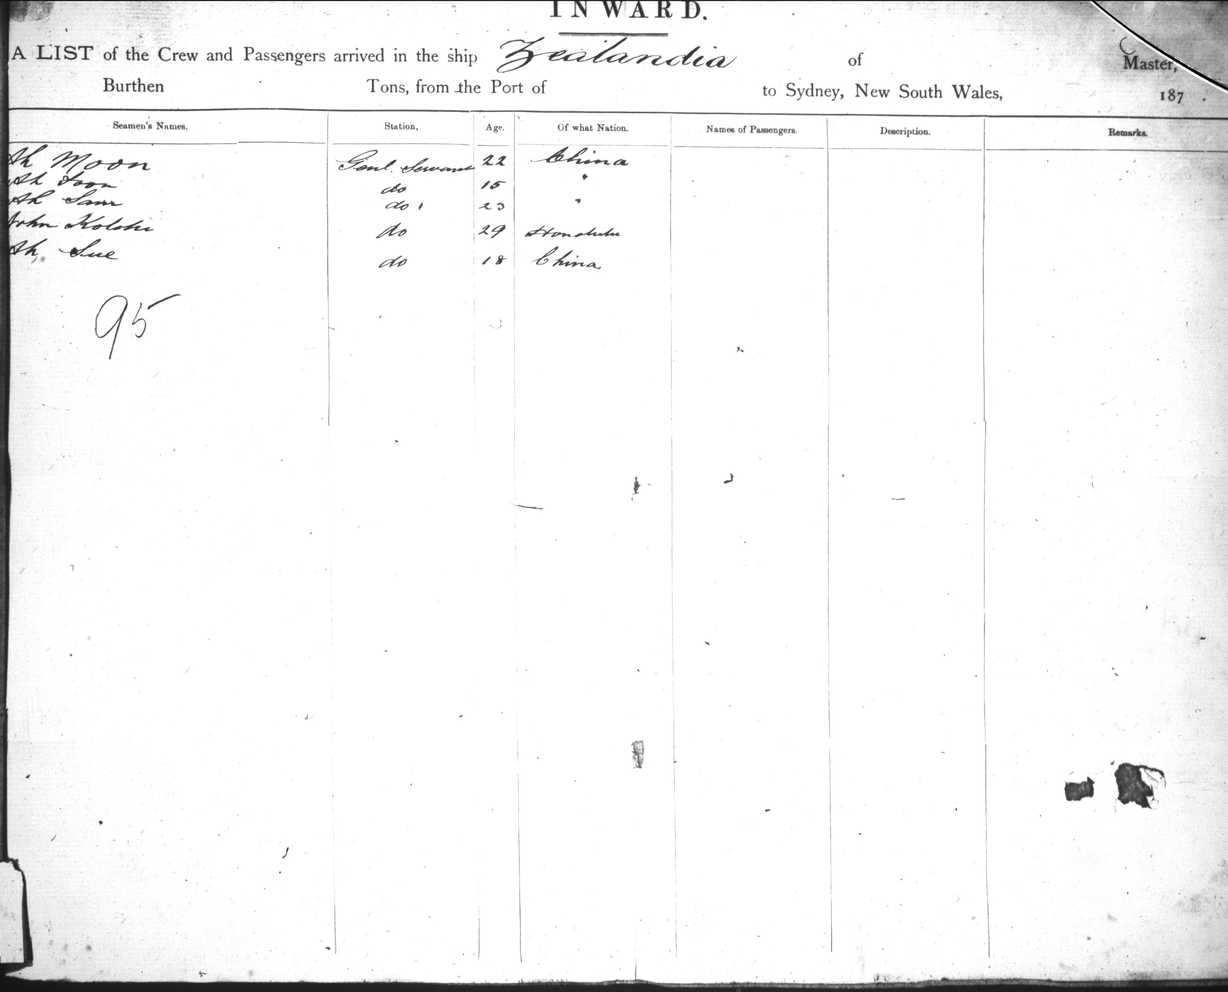 INWARD.
A LIST of the Crew and Passengers arrived in the ship Zealandia of Master,
Burthen Tons, from the Port of to Sydney, New South Wales, 187 .
Seamen's Names. Station, Age. Of what Nation. Names of Passengers. Description. Remarks.
Ah Moon Genl. Servant 22 China
Ah do 15 "
Ah Sam do 23 "
John do 29 Honolulu
Ah Sue do 18 China
95